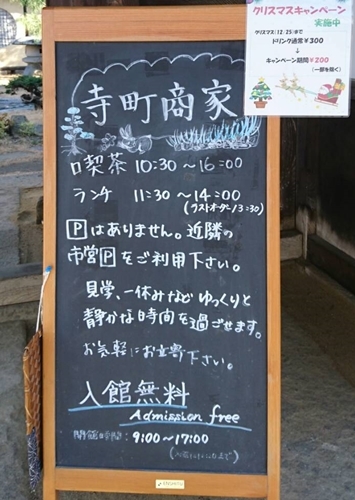 クリスマスキャンペーン
実施中
クリスマス(12/25)まで
ドリンク通常¥300
↓
キャンペーン期間¥200
(一部を除く)
寺町商家
喫茶 10:30～16:00
ランチ 11:30～14:00
(ラストオーダー13:30)
Pはありません。近隣の
市営Pをご利用下さい。
見学、一休みなどゆっくりと
静かな時間を過ごせます。
お気軽にお立寄下さい。
入館無料
Admission free
開館時間: 9:00～17:00